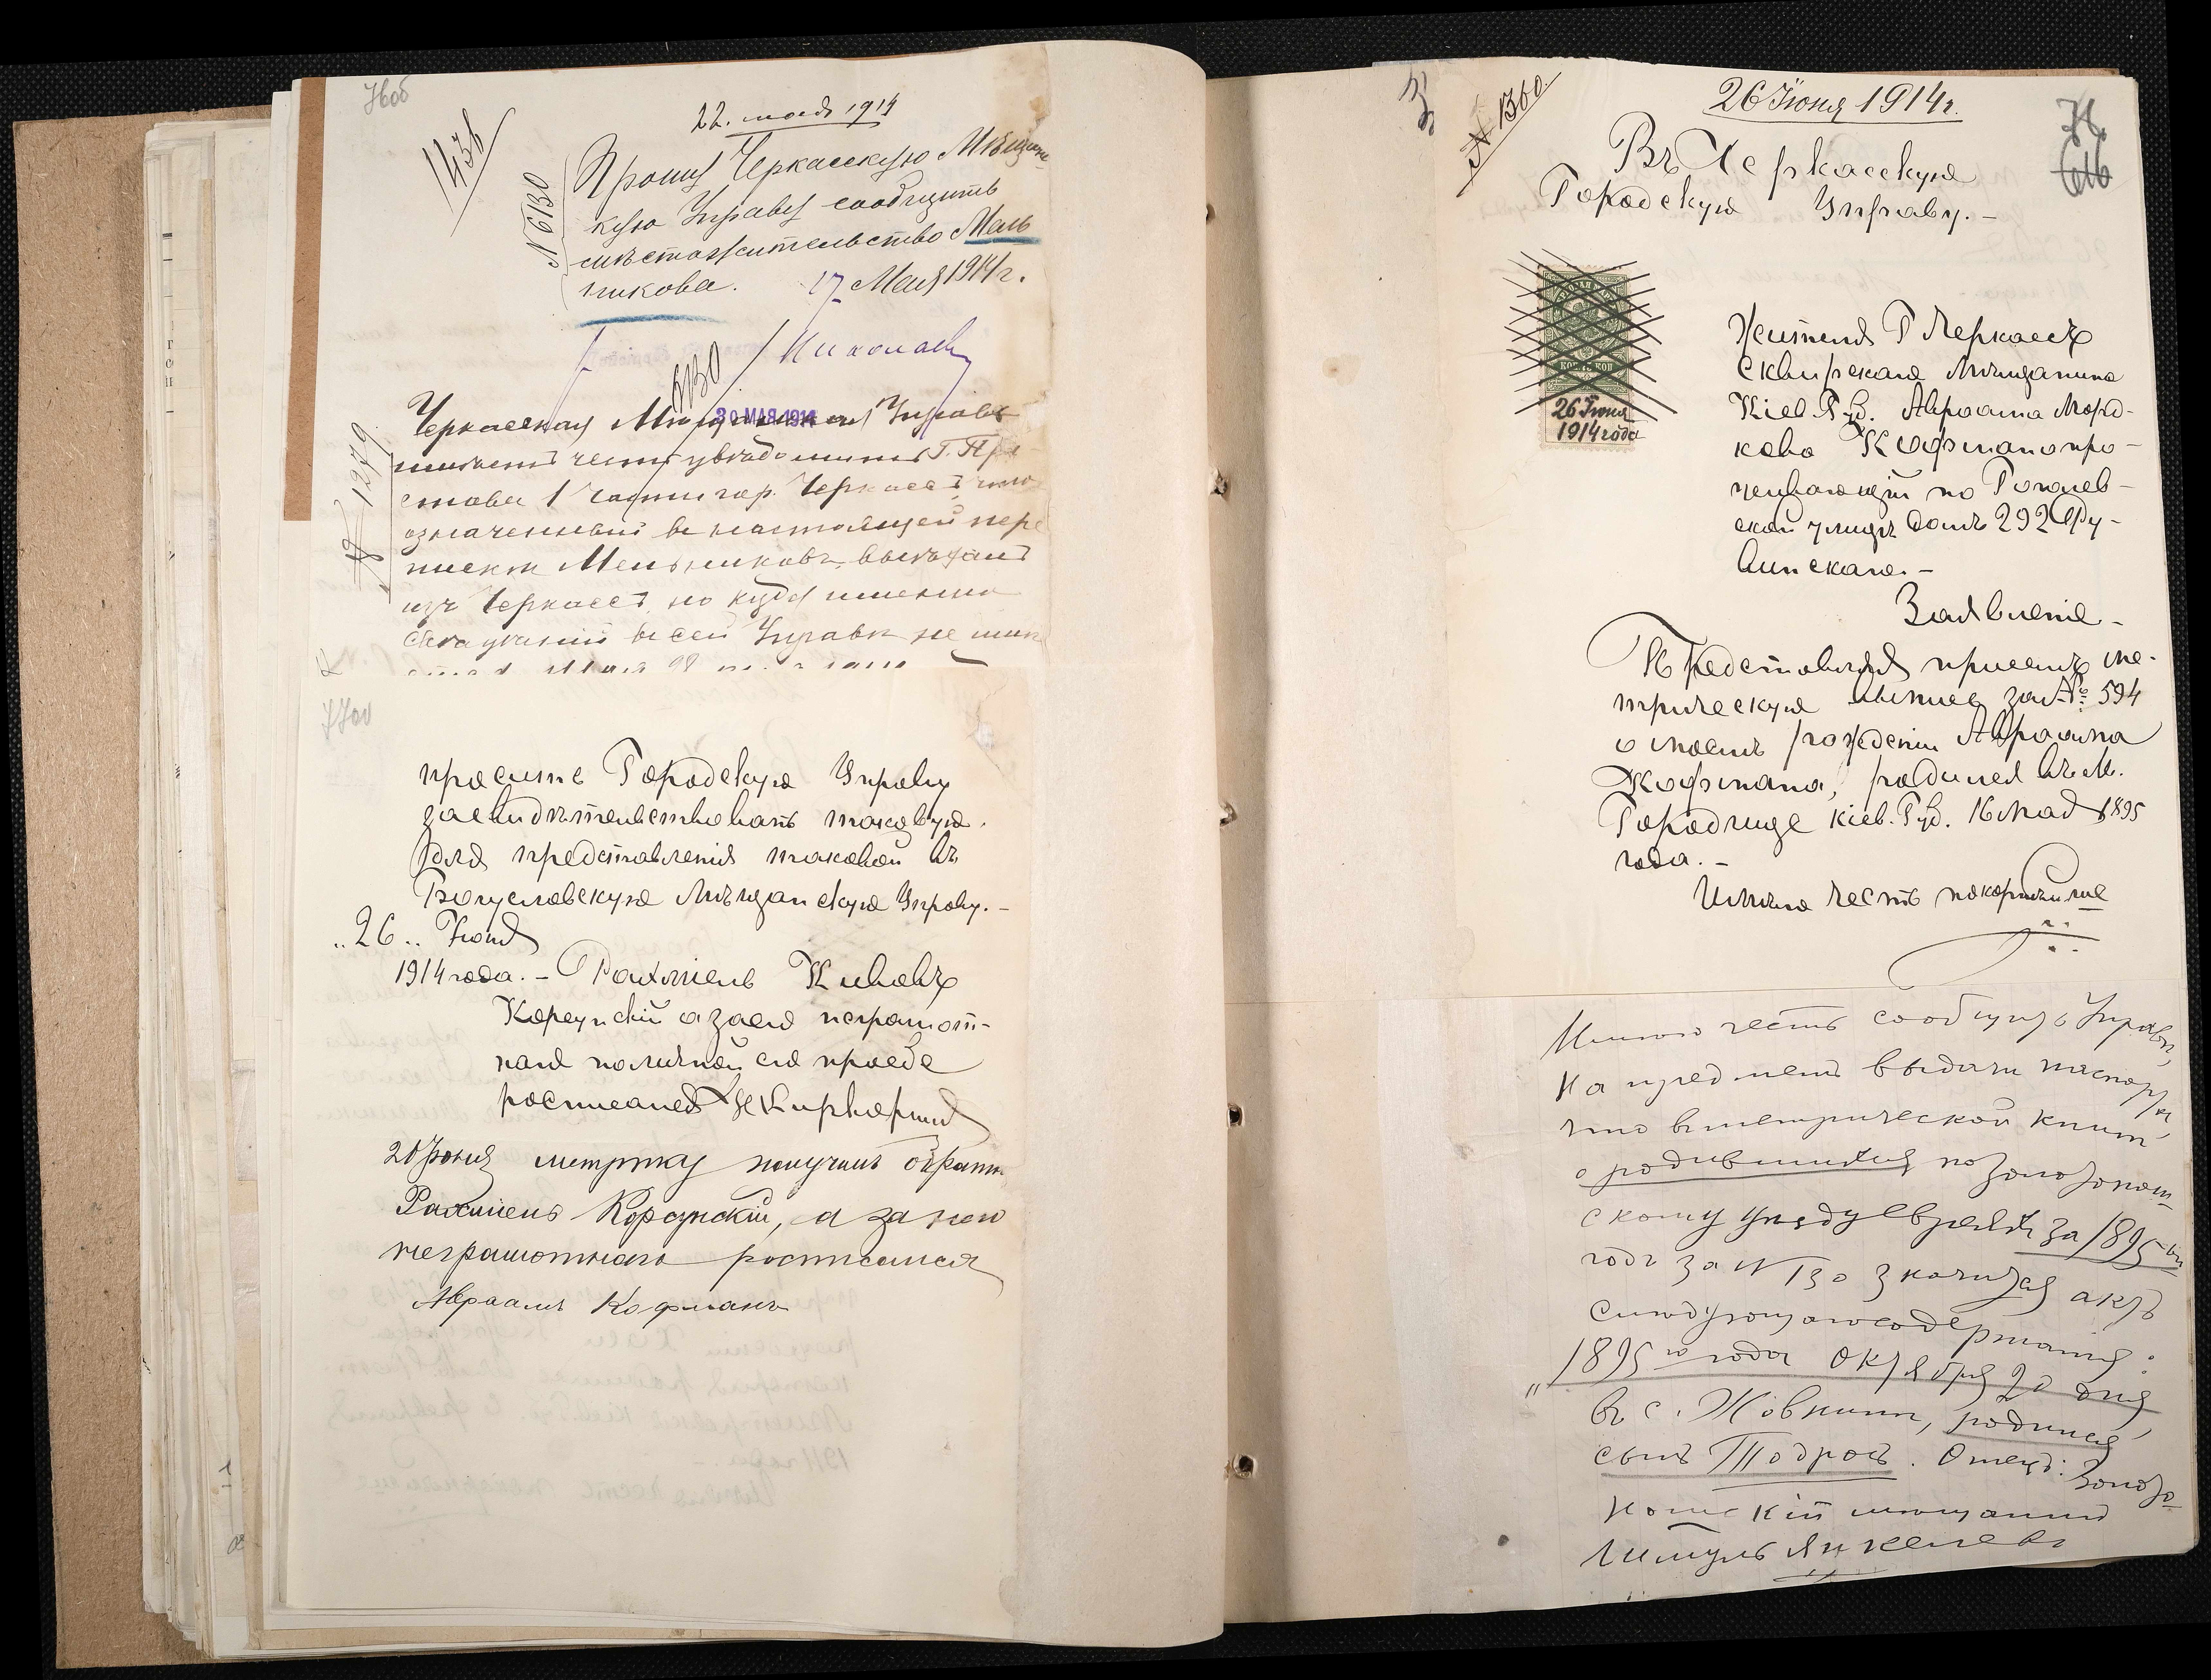 76об
1436
22. мая 1914
№ 6130
Прошу Черкасскую Мѣщанс-
кую Управу сообщить
мѣстожительство Мель
никова. 17 Мая 1914 г.
Николаев
6130
30 МАЯ 1914
№ 1279
Черкасская Мѣщанская Управа
имѣетъ честь увѣдомить Г. При
става 1 части гор. Черкассъ, что
означенный въ настоящей пере
пискѣ Мельниковъ выѣхалъ
изъ Черкассъ, но куда именно
свѣдѣній въ сей Управѣ не имѣ
77об
просить Городскую Управу
засвидѣтельствовать таковую
для представленія таковой въ
Богуславскую Мѣщанскую Управу. -
„26„ Іюня
1914 года. - Рахміель Кивовъ
Корсунскій а за его неграмот-
наго по личной его просьбе
росписался
26 Іюня метрику получилъ обратн
Рахміель Корсунскій, а за него
неграмотнаго росписался
Авраамъ Кофманъ
№ 1360.
26 Іюня 1914 г.
Въ Черкасскую
Городскую Управу. -
26 Іюня
1914 года
Жителя Г Черкассъ
Сквирскаго Мѣщанина
Кіев. Губ. Авраама Морд-
кова Кофмана про-
живающій по Гоголев-
ской улицѣ домъ 292
Заявленіе -
Представляя присемъ ме-
трическую выпись за № 594
о моемъ рожденіи Авраама
Кофмана, родился въ м.
Городище Кіев. Губ. 16 мая 1895
года. -
Имѣю честь покорнѣйше
Имѣю честь сообщить Управѣ,
на предметъ выдачи паспорта,
что въ метрической книгѣ
о родившихся по Золотонош-
скому уѣзду евреяхъ за 1895-ый
годъ за № 130 значится актъ
слѣдующаго содержанія:
„1895 го года Октября 20 дня
въ с. Жовнинѣ, родился
сынъ Тодросъ. Отецъ: Золото-
ношскій мѣщанинъ
Янкелевъ